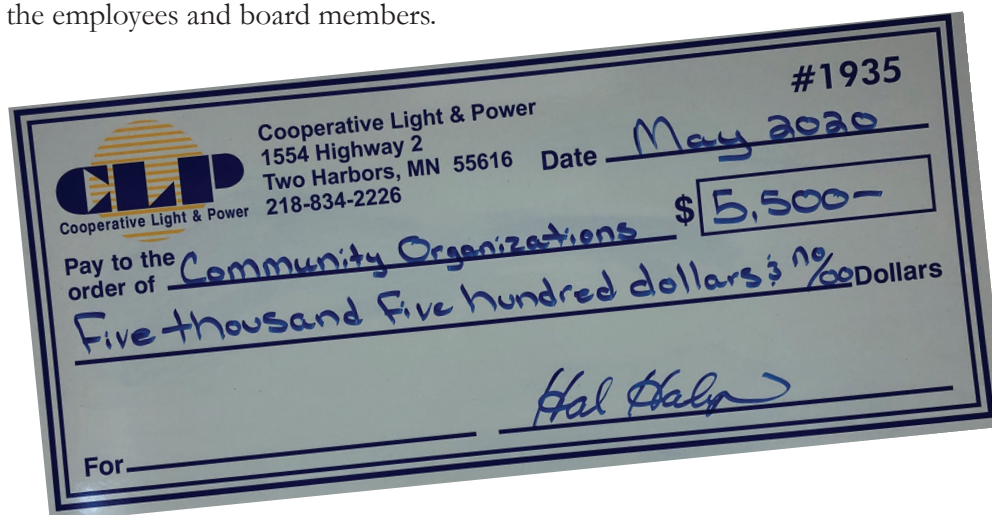 the employees and board members.
#1935
CLP
Cooperative Light & Power
Cooperative Light & Power
1554 Highway 2
Two Harbors, MN 55616
218-834-2226
Date May 2020
$ 5,500-
Pay to the order of Community Organizations
Five thousand five hundred dollars & no/00 Dollars
Hal Halp
For